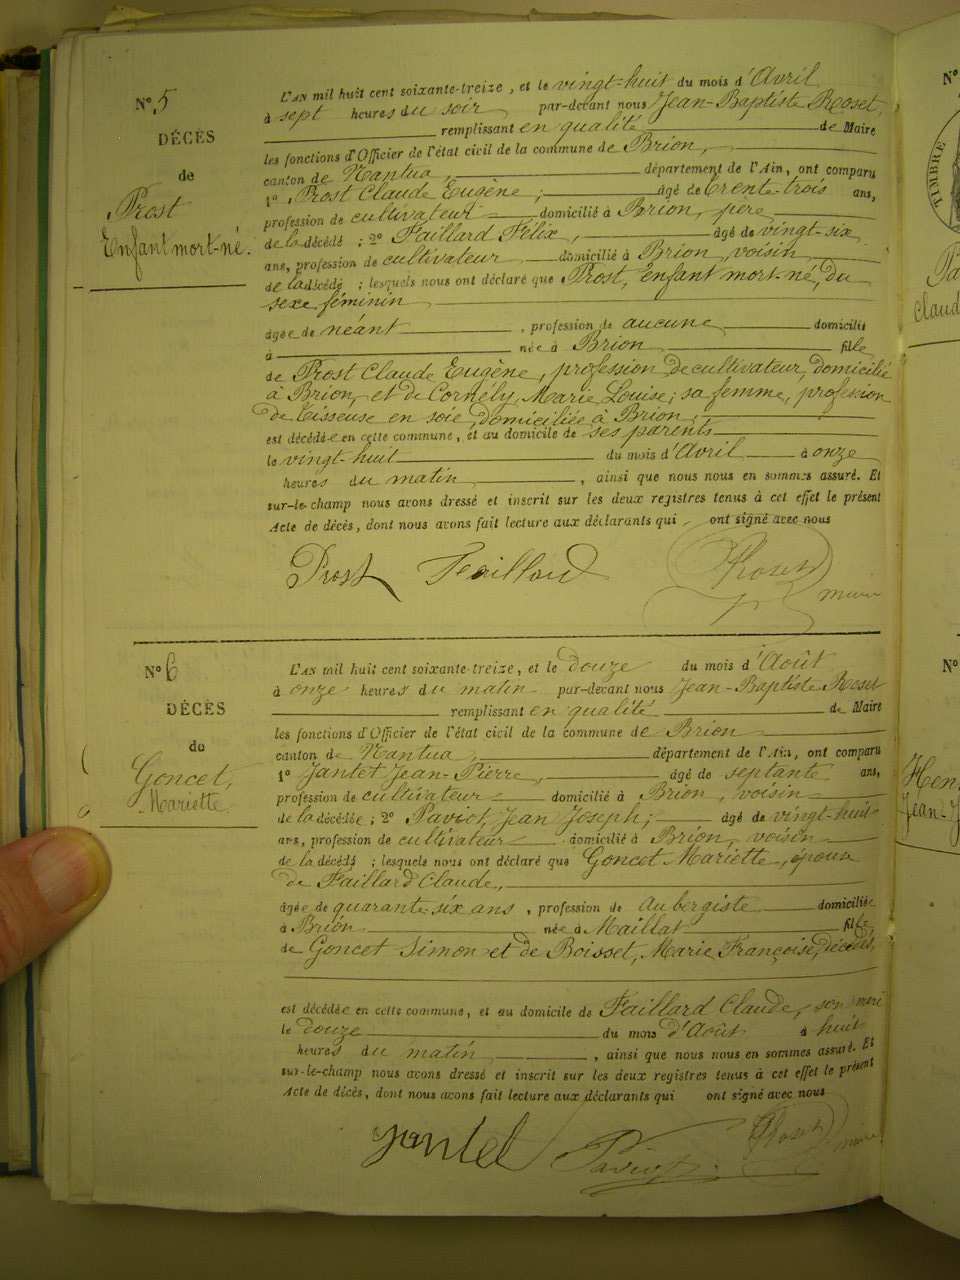 N° 5
DÉCÈS
de
Prost
Enfant mort-né.
L'AN mil huit cent soixante-treize, et le vingt-huit du mois d'Avril
à sept heures du soir par-devant nous Jean-Baptiste Roset,
remplissant en qualité de Maire
les fonctions d'Officier de l'état civil de la commune de Brion,
canton de Nantua, département de l'Ain, ont comparu
1° Prost Claude Eugène, âgé de trente-trois ans,
profession de cultivateur domicilié à Brion, père
de la décédé ; 2° Faillard Félix, âgé de vingt-six
ans, profession de cultivateur domicilié à Brion, voisin
de la décédé ; lesquels nous ont déclaré que Prost, enfant mort-né, du
sexe féminin
âgée de néant , profession de aucune domicilié
à née à Brion fille
de Prost Claude Eugène, profession de cultivateur, domicilié
à Brion, et de Cornély, Marie Louise, sa femme, profession
de tisseuse en soie, domiciliée à Brion,
est décédée en cette commune, et au domicile de ses parents
le vingt-huit du mois d'Avril à onze
heures du matin , ainsi que nous nous en sommes assuré. Et
sur-le-champ nous avons dressé et inscrit sur les deux registres tenus à cet effet le présent
Acte de décès, dont nous avons fait lecture aux déclarants qui ont signé avec nous
Prost Faillard Roset
maire
N° 6
DÉCÈS
de
Goncet,
Mariette
L'AN mil huit cent soixante-treize, et le douze du mois d'Août
à onze heures du matin par-devant nous Jean-Baptiste Roset
remplissant en qualité de Maire
les fonctions d'Officier de l'état civil de la commune de Brion
canton de Nantua, département de l'Ain, ont comparu
1° Jantet Jean-Pierre, âgé de septante ans,
profession de cultivateur domicilié à Brion, voisin
de la décédée ; 2° Paviot, Jean Joseph, âgé de vingt-huit
ans, profession de cultivateur domicilié à Brion, voisin
de la décédé ; lesquels nous ont déclaré que Goncet Mariette, épouse
de Faillard Claude,
âgée de quarante-six ans, profession de Aubergiste domiciliée
à Brion née à Maillat fille
de Goncet Simon et de Boisset, Marie Françoise, décédés,
est décédée en cette commune, et au domicile de Faillard Claude, son mari
le douze du mois d'Août à huit
heures du matin , ainsi que nous nous en sommes assuré. Et
sur-le-champ nous avons dressé et inscrit sur les deux registres tenus à cet effet le présent
Acte de décès, dont nous avons fait lecture aux déclarants qui ont signé avec nous
Jantet Paviot Roset maire
TIMBRE
N°
Claud
N°
Hen
Jean-J